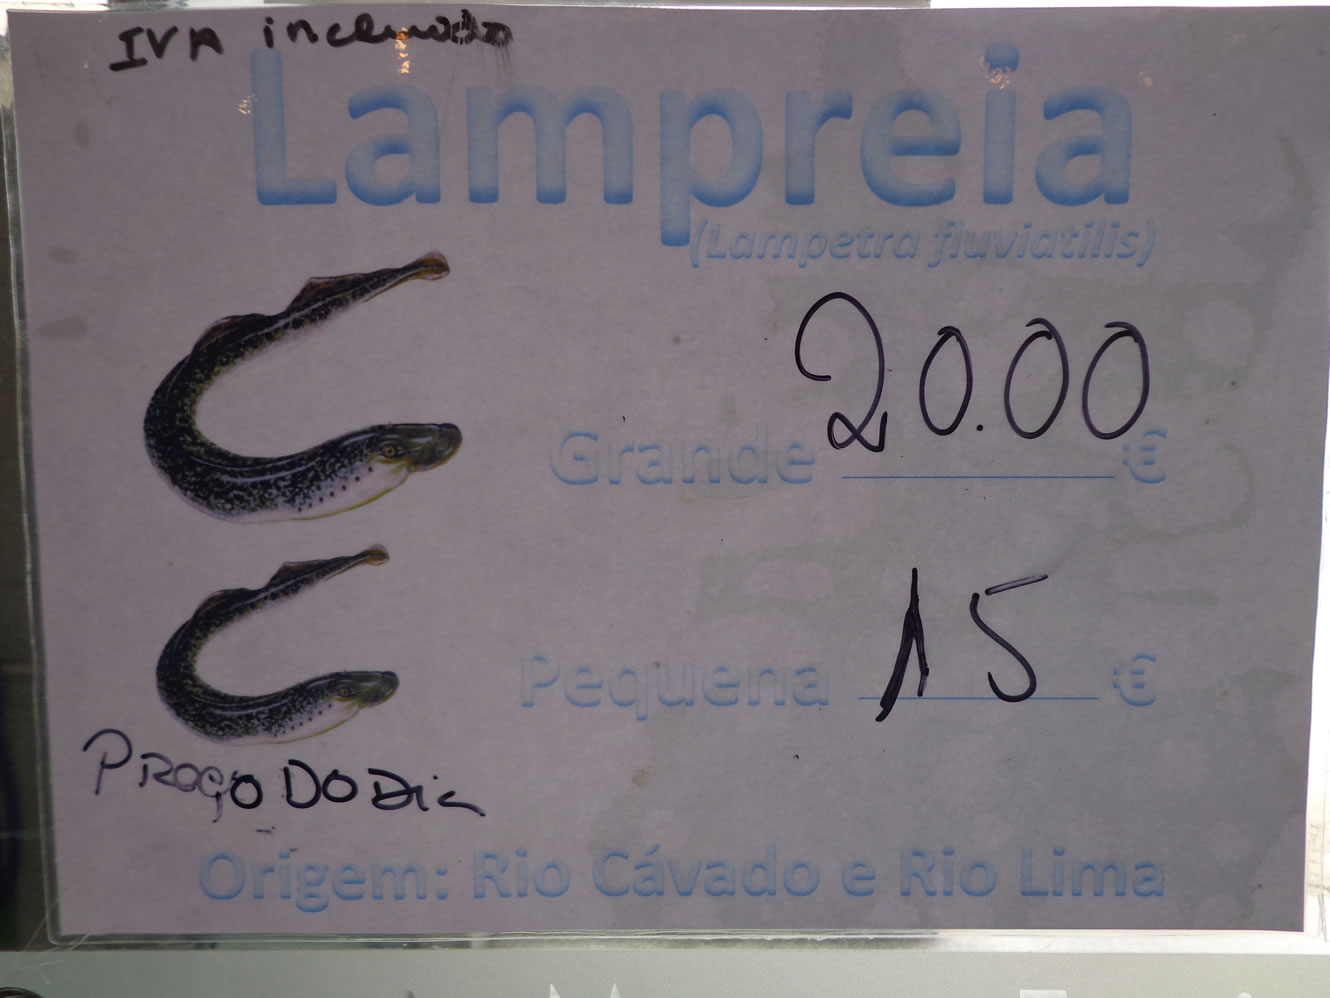 IVA incluido
Lampreia
(Lampetra fluviatilis)
Grande 20.00 €
Pequena 15 €
PREÇO DO Dia
Origem: Rio Cávado e Rio Lima